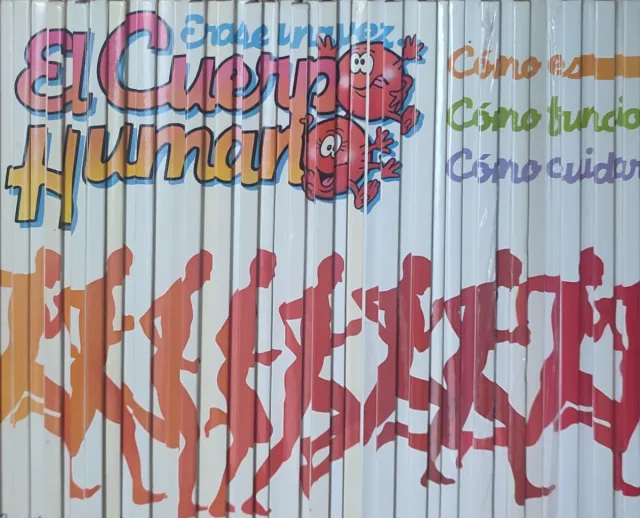 Erase una vez...
El Cuerpo
Humano
Cómo es
Cómo funcio
Cómo cuidar